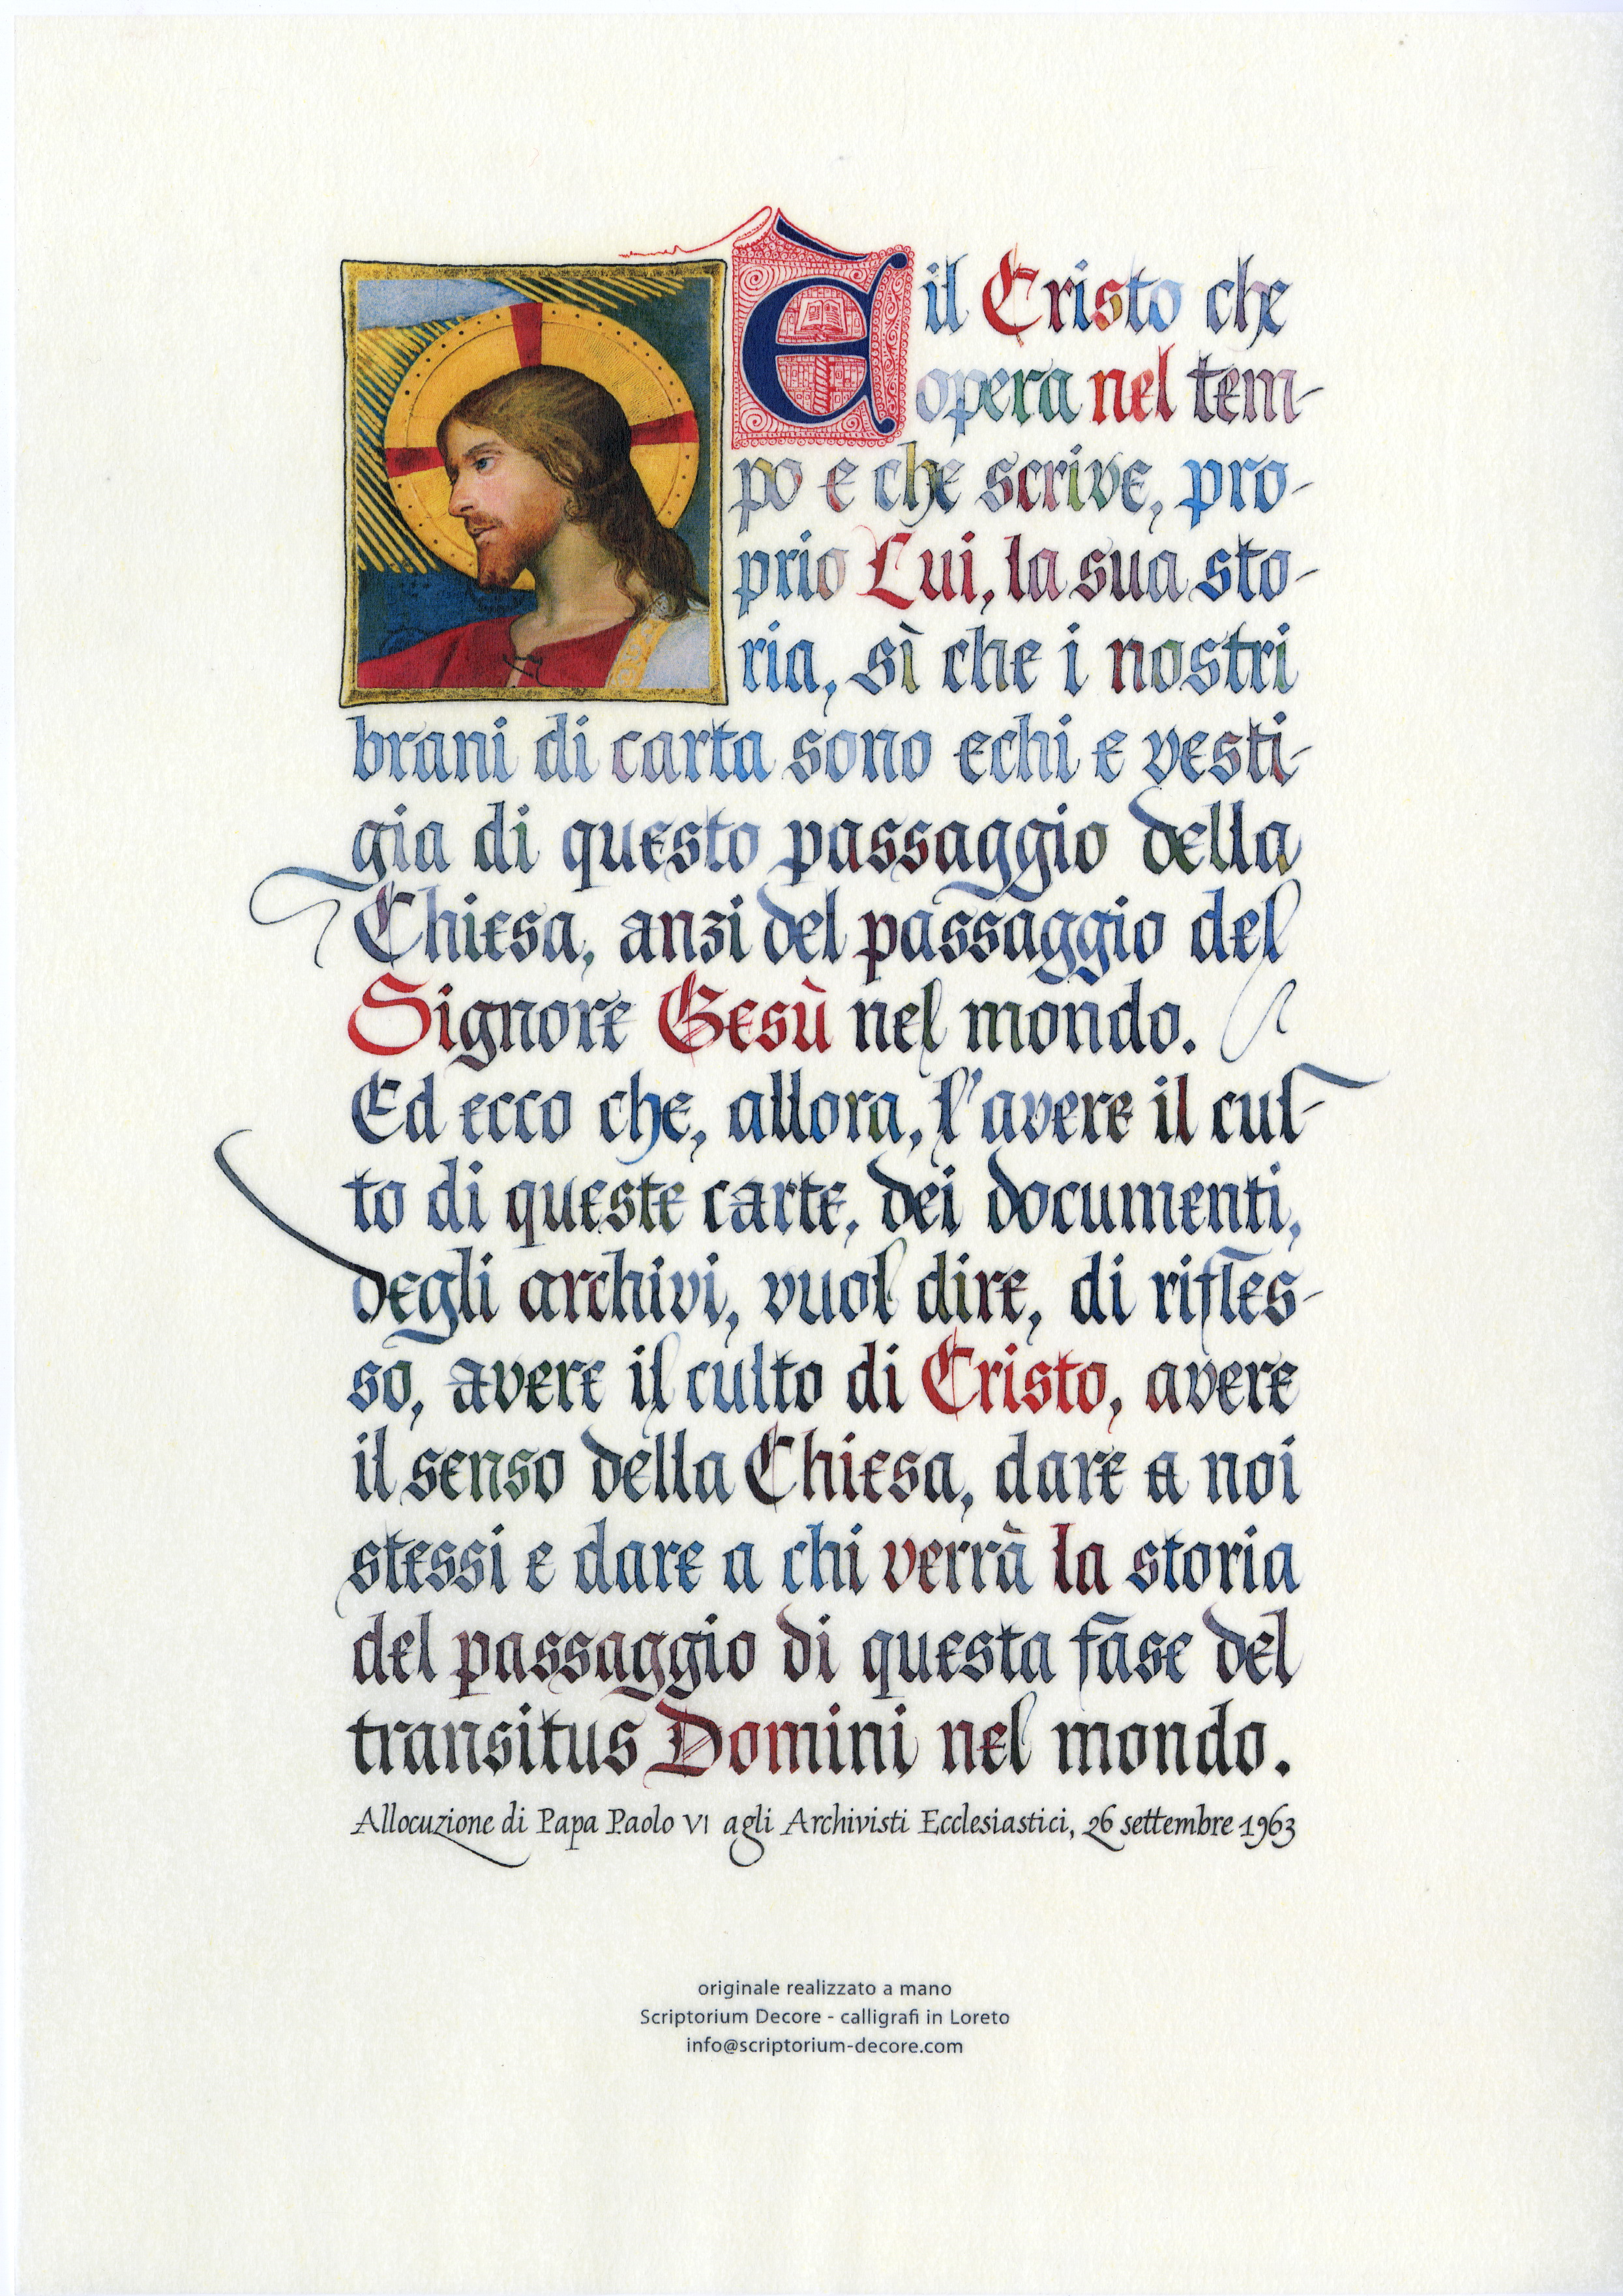 È il Cristo che
opera nel tem-
po e che scrive, pro-
prio Lui, la sua sto-
ria, sì che i nostri
brani di carta sono echi e vesti-
gia di questo passaggio della
Chiesa, anzi del passaggio del
Signore Gesù nel mondo.
Ed ecco che, allora, l'avere il cul-
to di queste carte, dei documenti,
degli archivi, vuol dire, di rifles-
so, avere il culto di Cristo, avere
il senso della Chiesa, dare a noi
stessi e dare a chi verrà la storia
del passaggio di questa fase del
transitus Domini nel mondo.
Allocuzione di Papa Paolo VI agli Archivisti Ecclesiastici, 26 settembre 1963
originale realizzato a mano
Scriptorium Decore - calligrafi in Loreto
info@scriptorium-decore.com